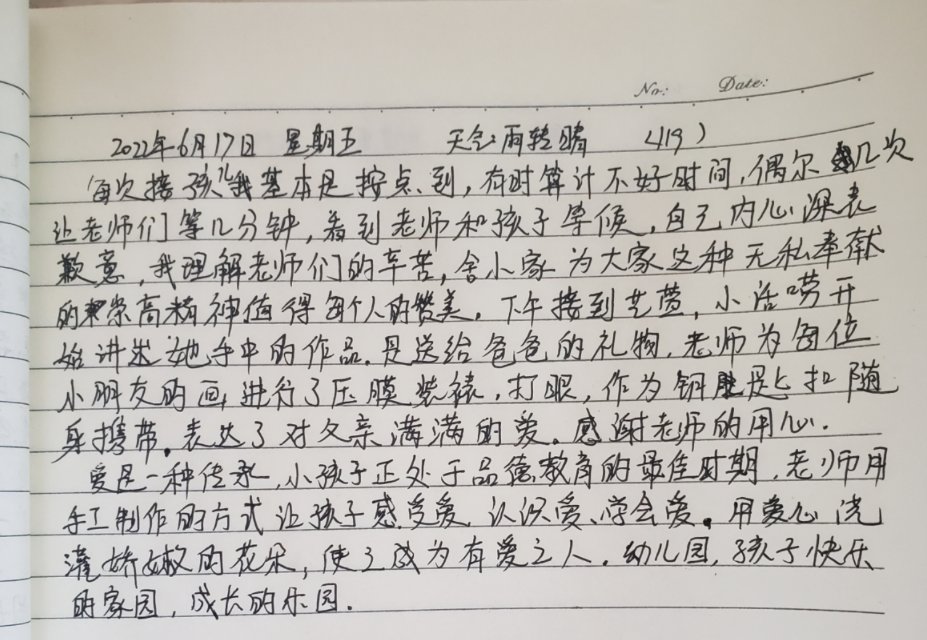 No: Date:
2022年6月17日 星期五 天气:雨转晴 (119)
每次接孩儿我基本是按点到,有时算计不好时间,偶尔几次
让老师们等几分钟,看到老师和孩子等候,自己内心深表
歉意,我理解老师们的辛苦,舍小家为大家这种无私奉献
的崇高精神值得每个人的赞美。下午接到艺萱,小话唠开
始讲述她手中的作品,是送给爸爸的礼物,老师为每位
小朋友的画,进行了压膜装裱,打眼,作为钥匙扣随
身携带。表达了对父亲满满的爱。感谢老师的用心.
爱是一种传承,小孩子正处于品德教育的最佳时期,老师用
手工制作的方式让孩子感受爱、认识爱、学会爱。用爱心浇
灌娇嫩的花朵,使了成为有爱之人。幼儿园,孩子快乐
的家园,成长的乐园.